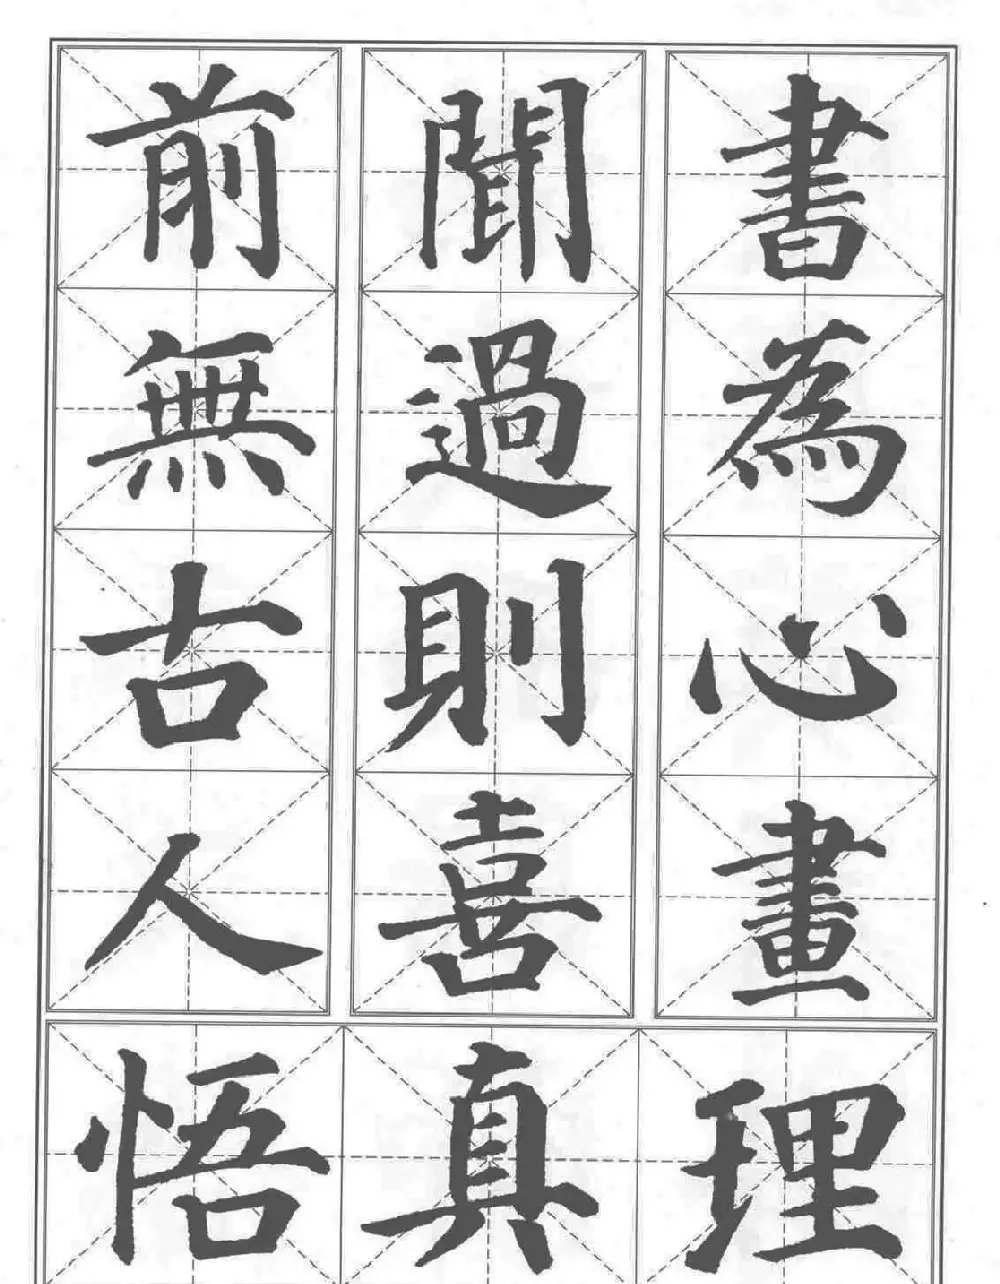 書為心畫
聞過則喜
前無古人
悟真理